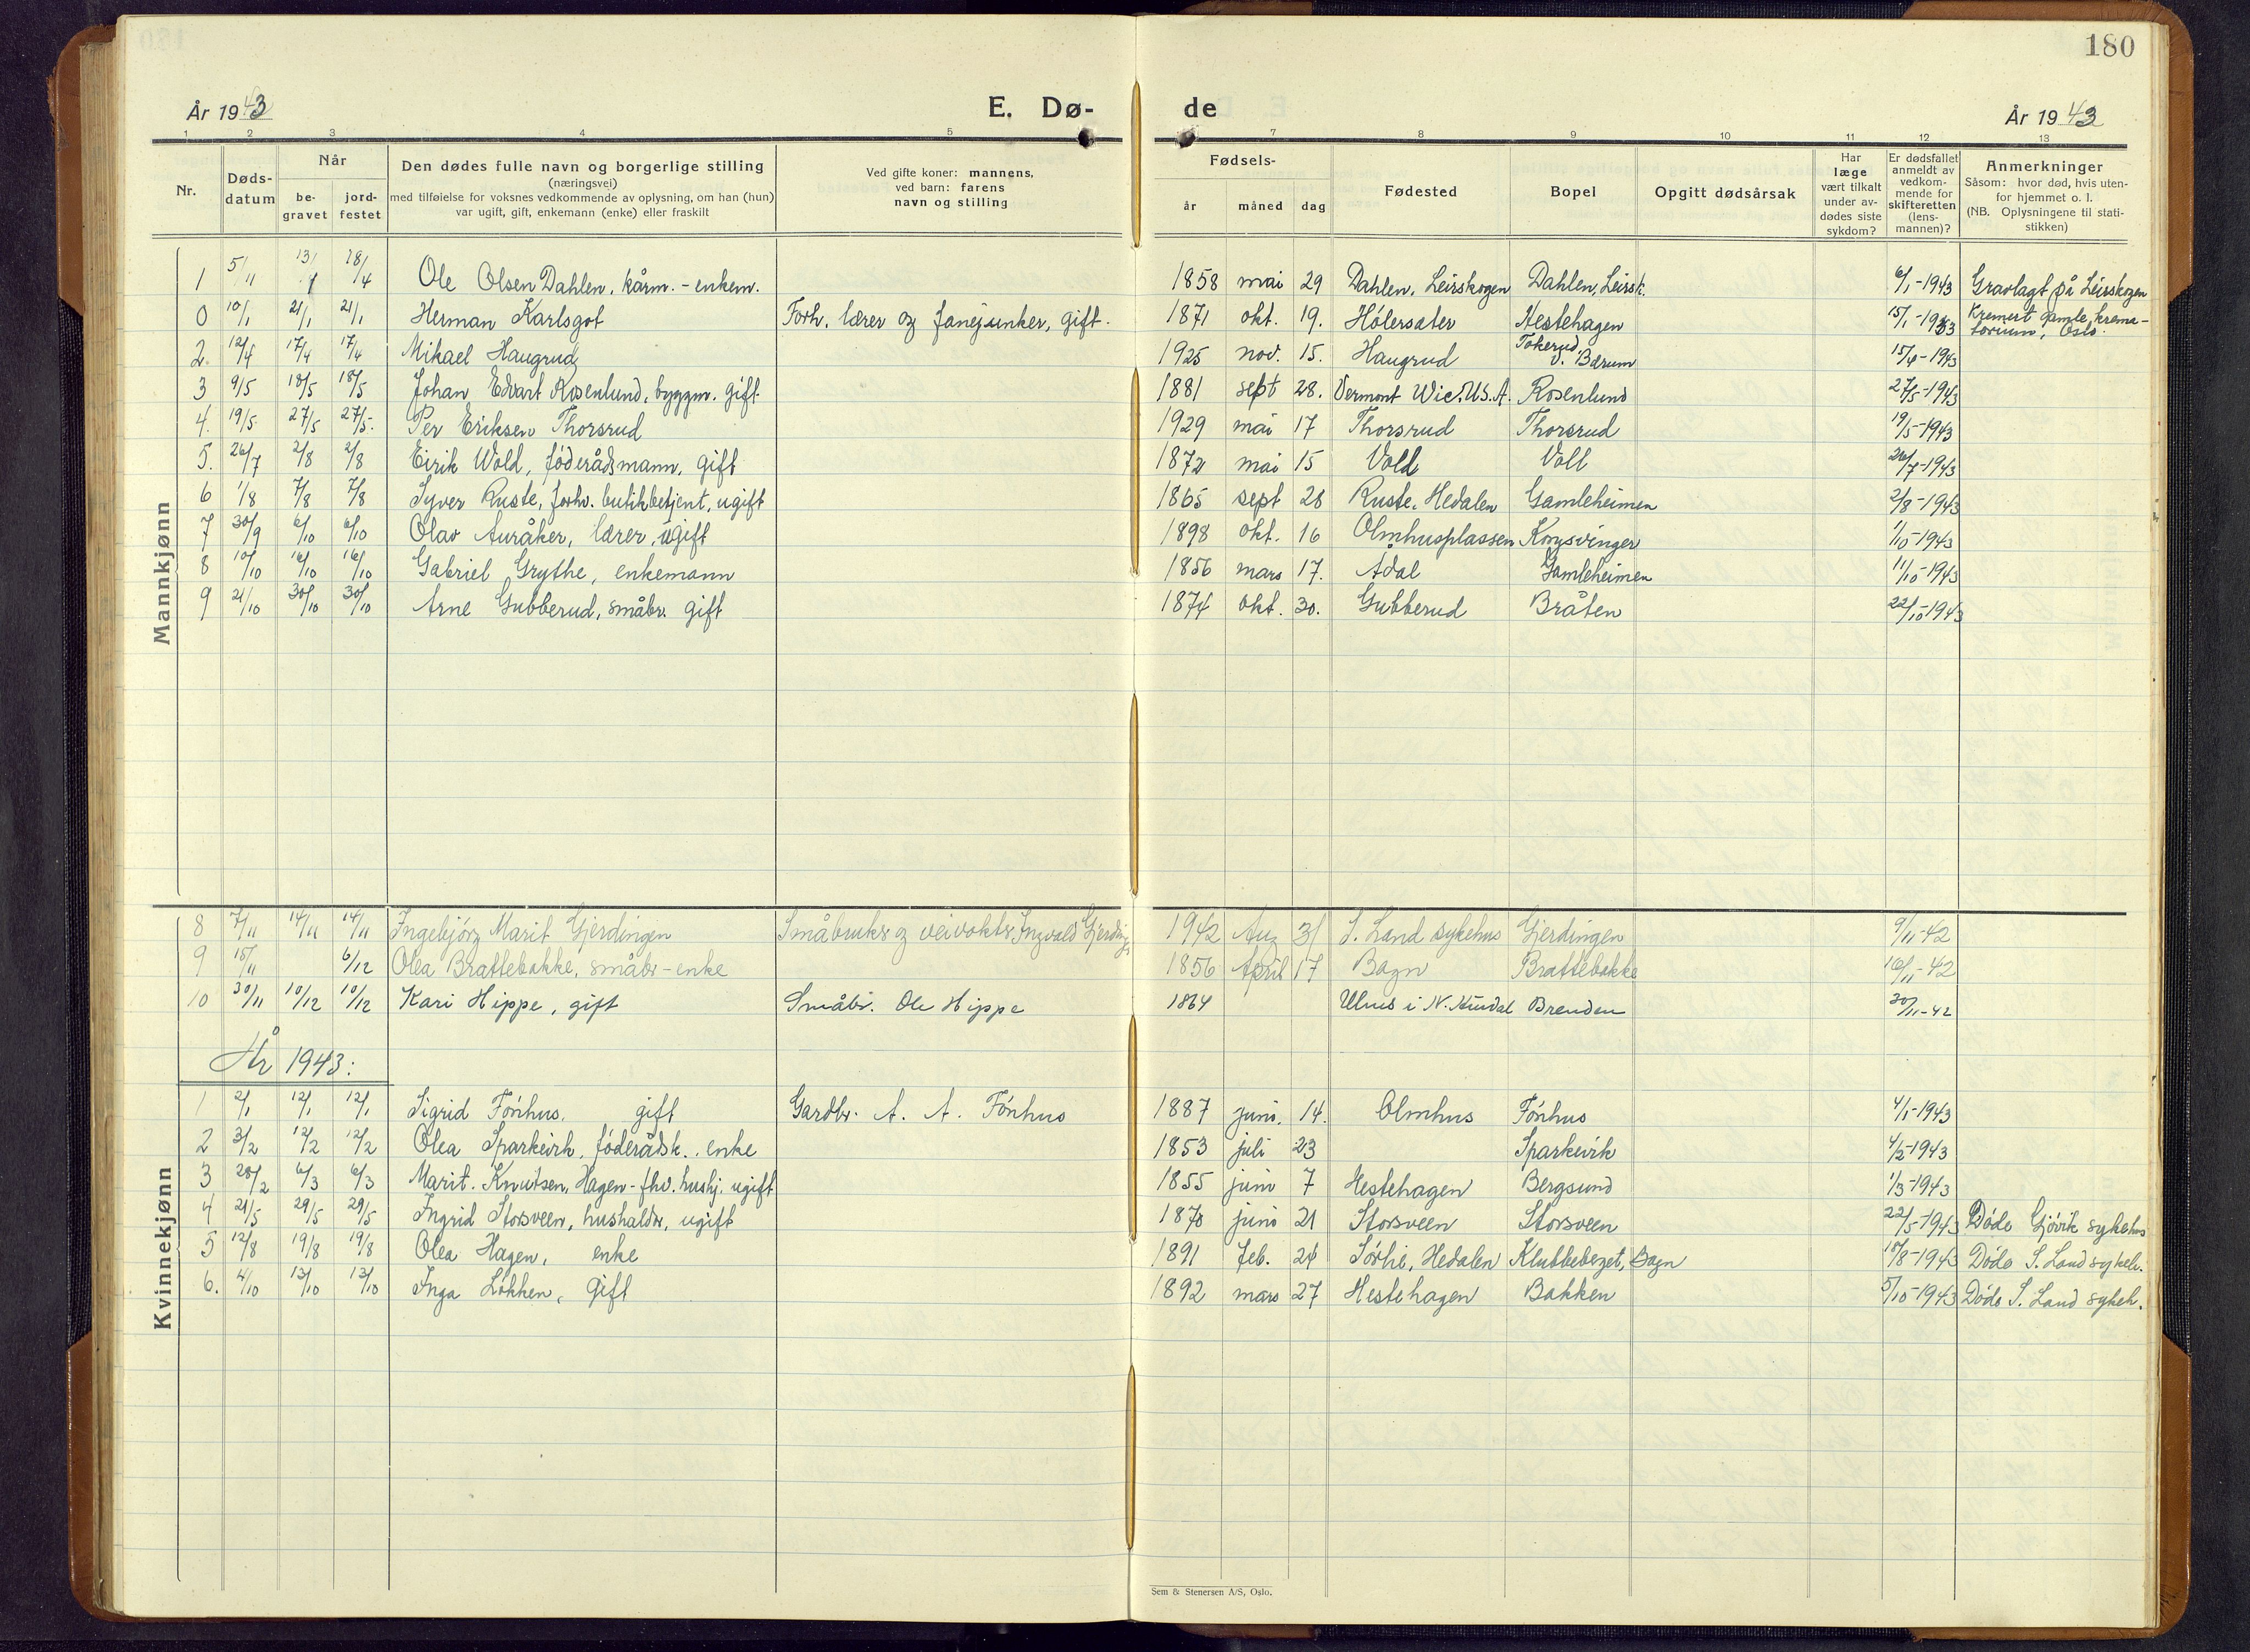 180
År 1943
E. Dø-
de
År 1943
1 2 3 4 5 7 8 9 10 11 12 13
Nr.
Døds-
datum
Når
be-
gravet
jord-
festet
Den dødes fulle navn og borgerlige stilling
(næringsvei)
med tilføielse for voksnes vedkommende av oplysning, om han (hun)
var ugift, gift, enkemann (enke) eller fraskilt
Ved gifte koner: mannens,
ved barn: farens
navn og stilling
Fødsels-
år måned dag
Fødested
Bopel
Opgitt dødsårsak
Har
læge
vært tilkalt
under av-
dødes siste
sykdom?
Er dødsfallet
anmeldt av
vedkom-
mende for
skifteretten
(lens-
mannen)?
Anmerkninger
Såsom: hvor død, hvis uten-
for hjemmet o. l.
(NB. Oplysningene til stati-
stikken)
Mannkjønn
1 Ole Olsen Dahlen, kårm. - enkem. 1858 mai 29 Dahlen, Leirskogen Dahlen, Leirsk. 6/1-1943 Gravlagt på Leirskogen
0 10/1 21/1 21/1 Herman Karlsgot Forh. lærer og fanejunker, gift. 1871 okt. 19. Hólersæter Hestehagen Kremert gamle krema-
torium, Oslo.
2. 12/4 17/4 17/4 Mikael Haugrud 1925 nov. 15. Haugrud Tokerud
V. Bærum 15/4-1943
3 9/5 18/5 18/5 Johan Edvart Rosenlund, byggm. gift 1881 sept 28. Vermont Wic. U.S.A. Rosenlund 27/5-1943
4. 19/5 27/5 27/5. Per Eriksen Thorsrud 1929 mai 17 Thorsrud Thorsrud 19/5-1943
5. 26/7 2/8 2/8 Eirik Wold, fóderådsmann, gift 1872 mai 15 Vold Voll 26/7-1943
6 1/8 7/8 7/8 Syver Ruste, forhv. butikbetjent, ugift 1865 sept 28 Ruste, Hedalen Gamleheimen 2/8-1943
7 30/9 6/10 6/10 Olav Auråker, lærer, ugift 1898 okt. 16 Olmhusplassen Kongsvinger 1/10-1943
8 10/10 16/10 16/10 Gabriel Grythe, enkemann 1856 mars 17. Ådal Gamleheimen 11/10-1943
9 21/10 30/10 30/10 Arne Gubberud, småbr. gift 1874 okt. 30. Gubberud Bråten 22/10-1943
8 7/11 14/11 14/11 Ingebjörg Marit Gjerdingen Småbruks og veivokter Ingvald Gjerding. 1942 Aug 31 S. Land sykehus Gjerdingen 9/11-42
9 15/11 6/12 Olea Brattebakke, småbr-enke 1856 April 17 Bagn Brattebakke 16/11-42
10 30/11 10/12 10/12 Kari Hippe, gift Småbr. Ole Hippe 1864 Ulnes i N. Brenden 30/11-42
År 1943:
Kvinnekjønn
1 2/1 12/1 12/1 Sigrid Fónhus, gift Gardbr. A. A. Fónhus 1887 juni. 14. Olmhus Fónhus 4/1-1943
2 3/2 12/2 12/2 Olea Sparkevik, fóderådsk.. enke 1853 juli 23 Sparkevik 4/2-1943
3 28/2 6/3 6/3 Marit. Knutsen, Hagen - fhv. hushj. ugift 1855 juni 7 Hestehagen Bergsund 1/3-1943
4 21/5 29/5 29/5 Ingrid Storsveen, hushaldr, ugift 1878 juni 21 Storsveen Storsveen 22/5-1943 Döde Gjóvik sykehus
5 12/8 19/8 19/8 Olea Hagen, enke 1891 feb. 24 Sórli, Hedalen Klubbeberget, Bagn 15/8-1943 Döde S. Land sykeh.
6. 4/10 13/10 13/10 Inga Lókken, gift 1892 mars 27 Hestehagen Bakken 5/10-1943 Döde S. Land sykeh.
Sem & Stenersen A/S, Oslo.